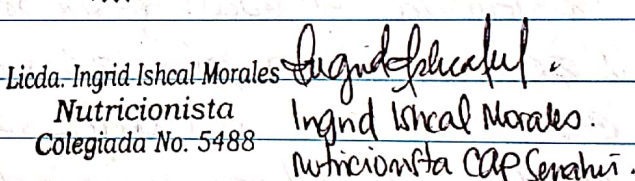 Licda. Ingrid Ishcal Morales
Nutricionista
Colegiada No. 5488
Ingrid Ishcal Morales.
Nutricionista CAP Senahú.